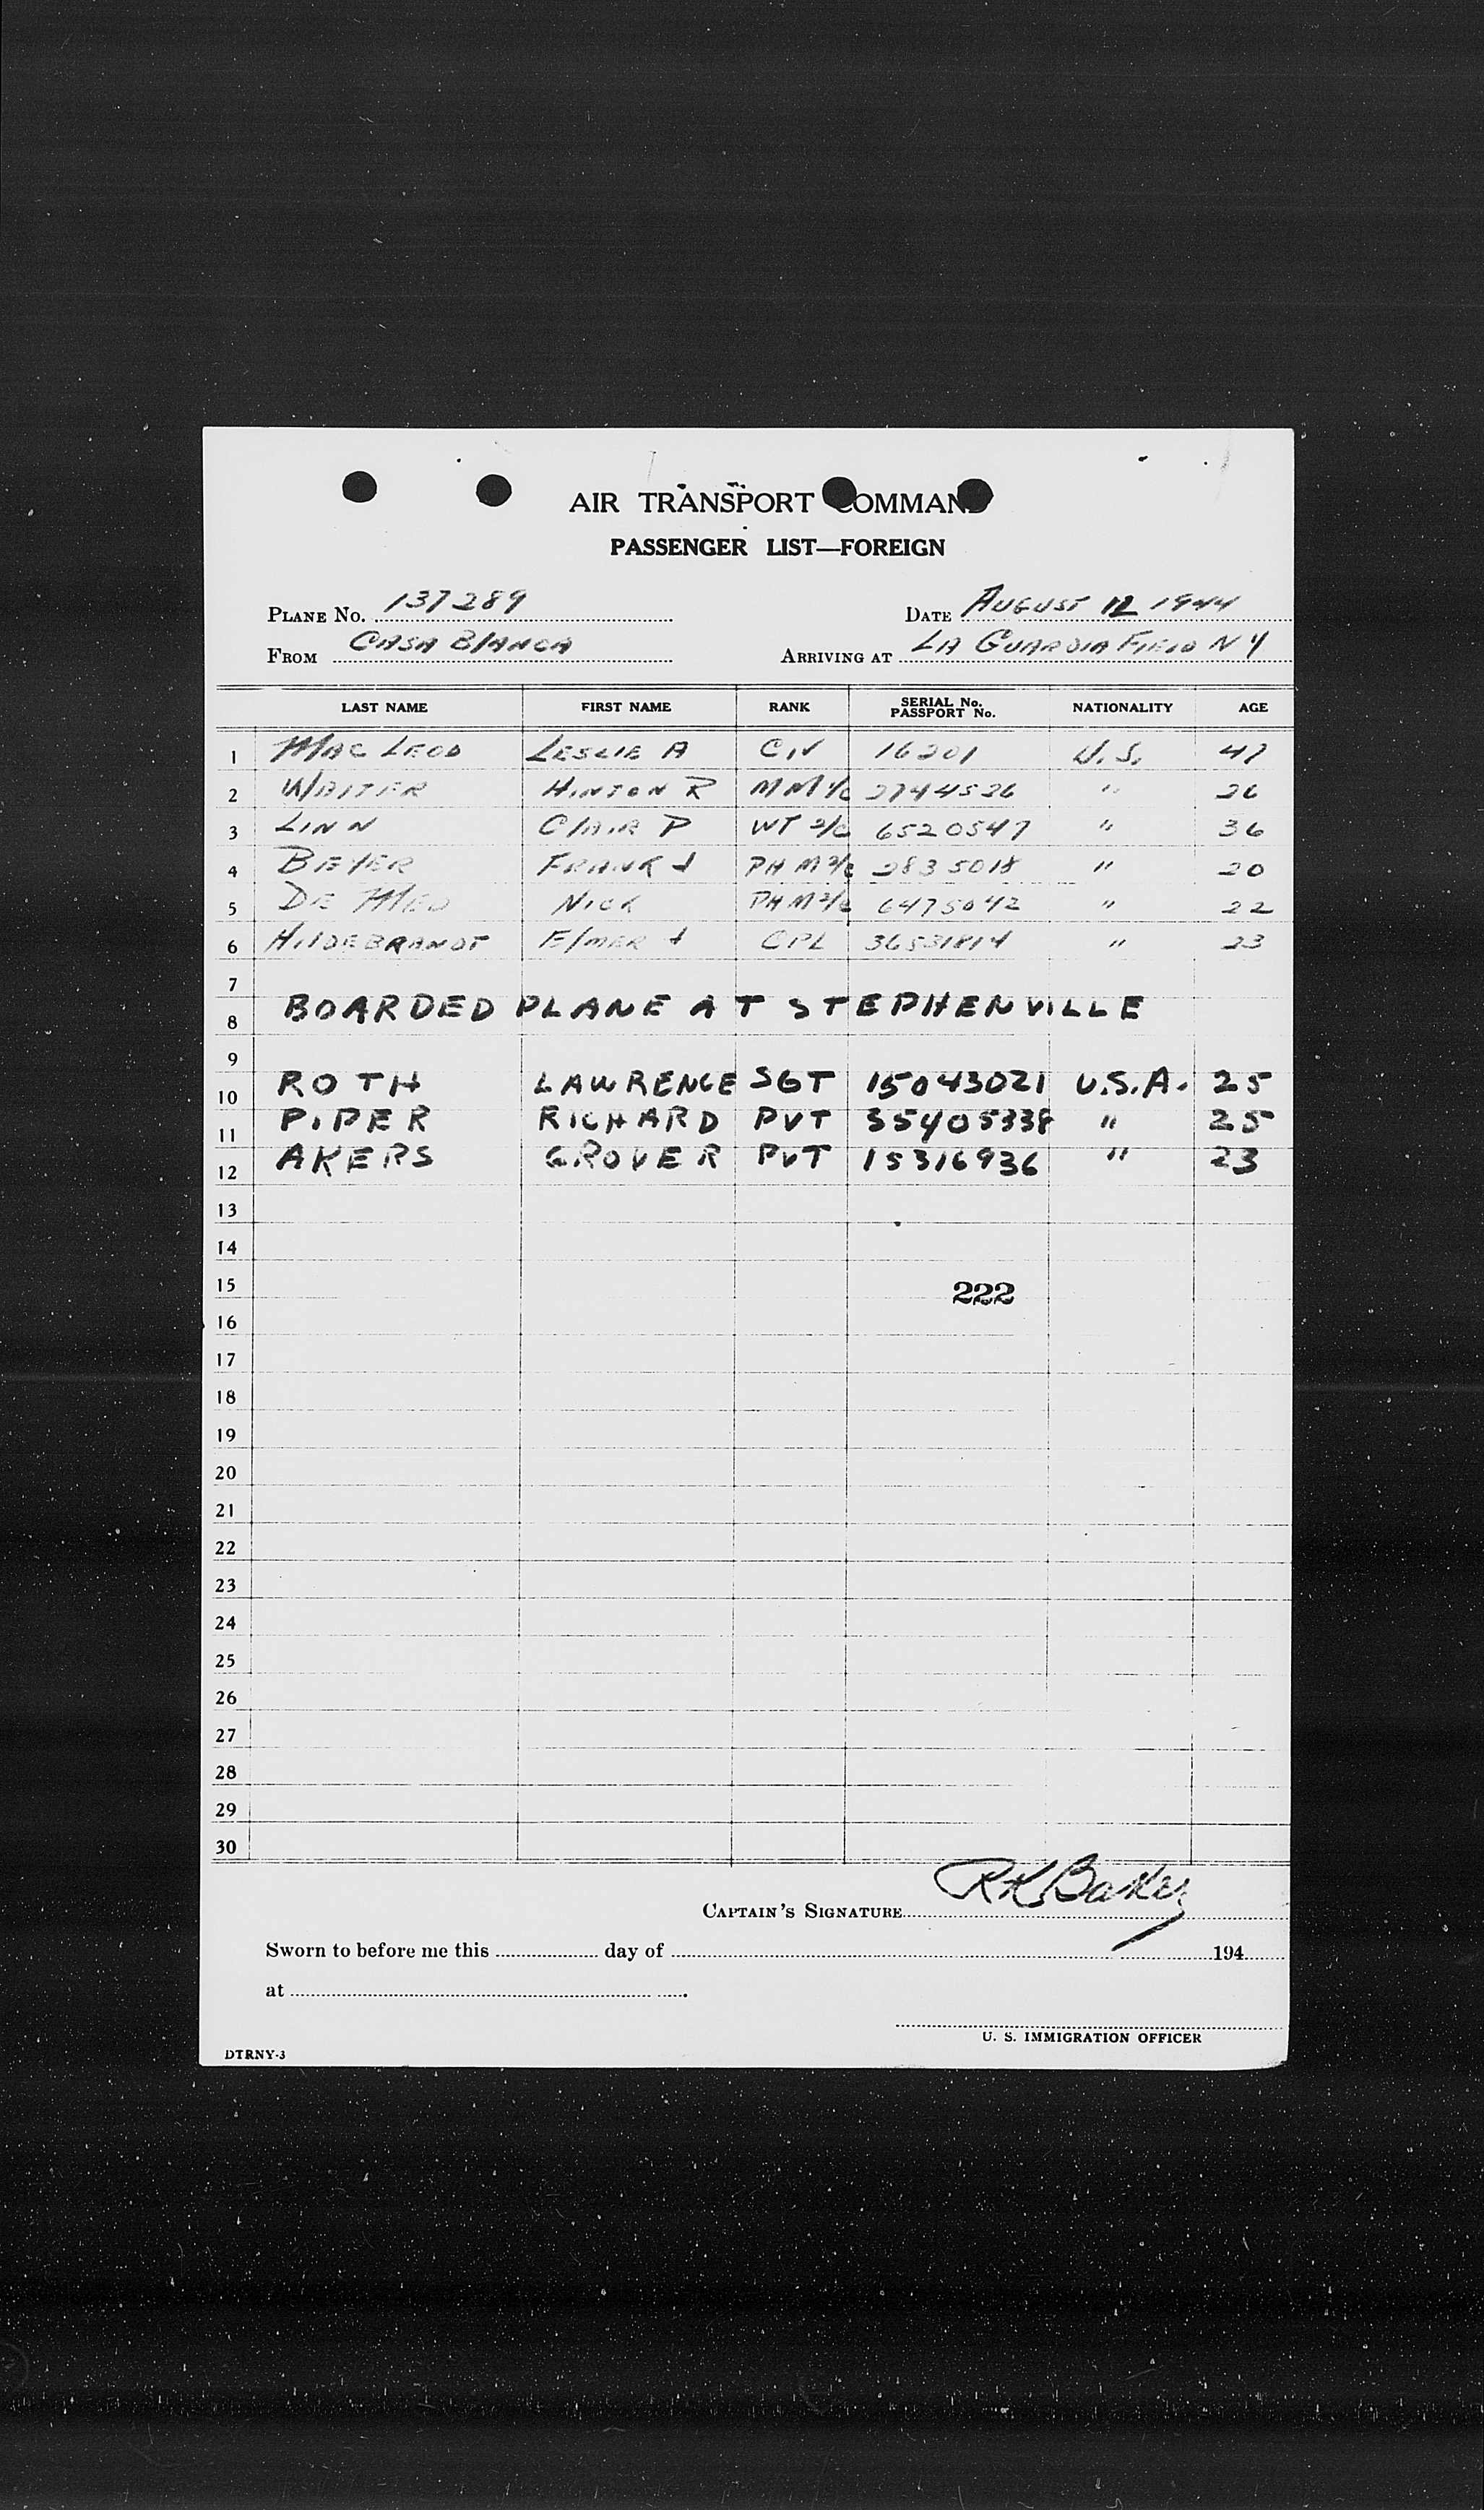 AIR TRANSPORT COMMAND
PASSENGER LIST—FOREIGN
PLANE No. 137289 DATE AUGUST 12 1944
FROM CASA BLANCA ARRIVING AT LA GUARDIA FIELD N Y
LAST NAME FIRST NAME RANK SERIAL No. PASSPORT No. NATIONALITY AGE
1 MAC LEOD LESLIE A CIV 16201 U.S. 47
2 WAITER HINTON R MM 1/C 2744526 " 26
3 LINN CLAIR P WT 2/C 6520547 " 36
4 BEYER FRANK J PH M 2/C 2835018 " 20
5 DE MEO NICK PH M 2/C 6475042 " 22
6 HILDEBRANDT ELMER J CPL 36531814 " 23
7
8 BOARDED PLANE AT STEPHENVILLE
9
10 ROTH LAWRENCE SGT 15043021 U.S.A. 25
11 PIPER RICHARD PVT 35405338 " 25
12 AKERS GROVER PVT 15316936 " 23
13
14
15 222
16
17
18
19
20
21
22
23
24
25
26
27
28
29
30
CAPTAIN'S SIGNATURE RK Baker
Sworn to before me this day of 194
at
U. S. IMMIGRATION OFFICER
DTRNY-3